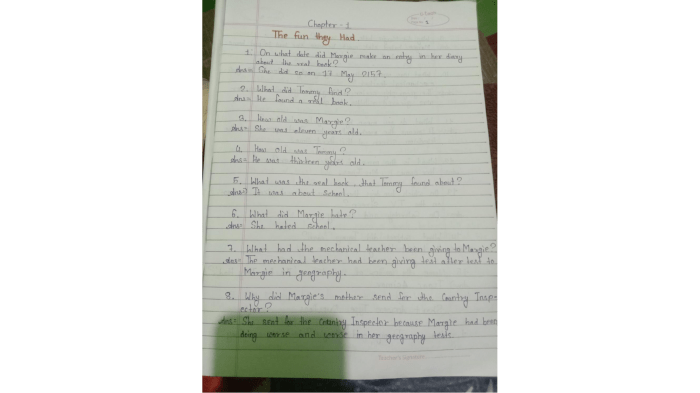 Chapter - 1
The Fun they Had
1. On what date did Margie make an entry in her diary
about the real book?
Ans= She did so on 17 May 2157.
2. What did Tommy find?
Ans= He found a real book.
3. How old was Margie?
Ans= She was eleven years old.
4. How old was Tommy?
Ans= He was thirteen years old.
5. What was the real book that Tommy found about?
Ans= It was about school.
6. What did Margie hate?
Ans= She hated school.
7. What had the mechanical teacher been giving to Margie?
Ans= The mechanical teacher had been giving test after test to
Margie in geography.
8. Why did Margie's mother send for the Country Insp-
ector?
Ans= She sent for the Country Inspector because Margie had been
doing worse and worse in her geography tests.